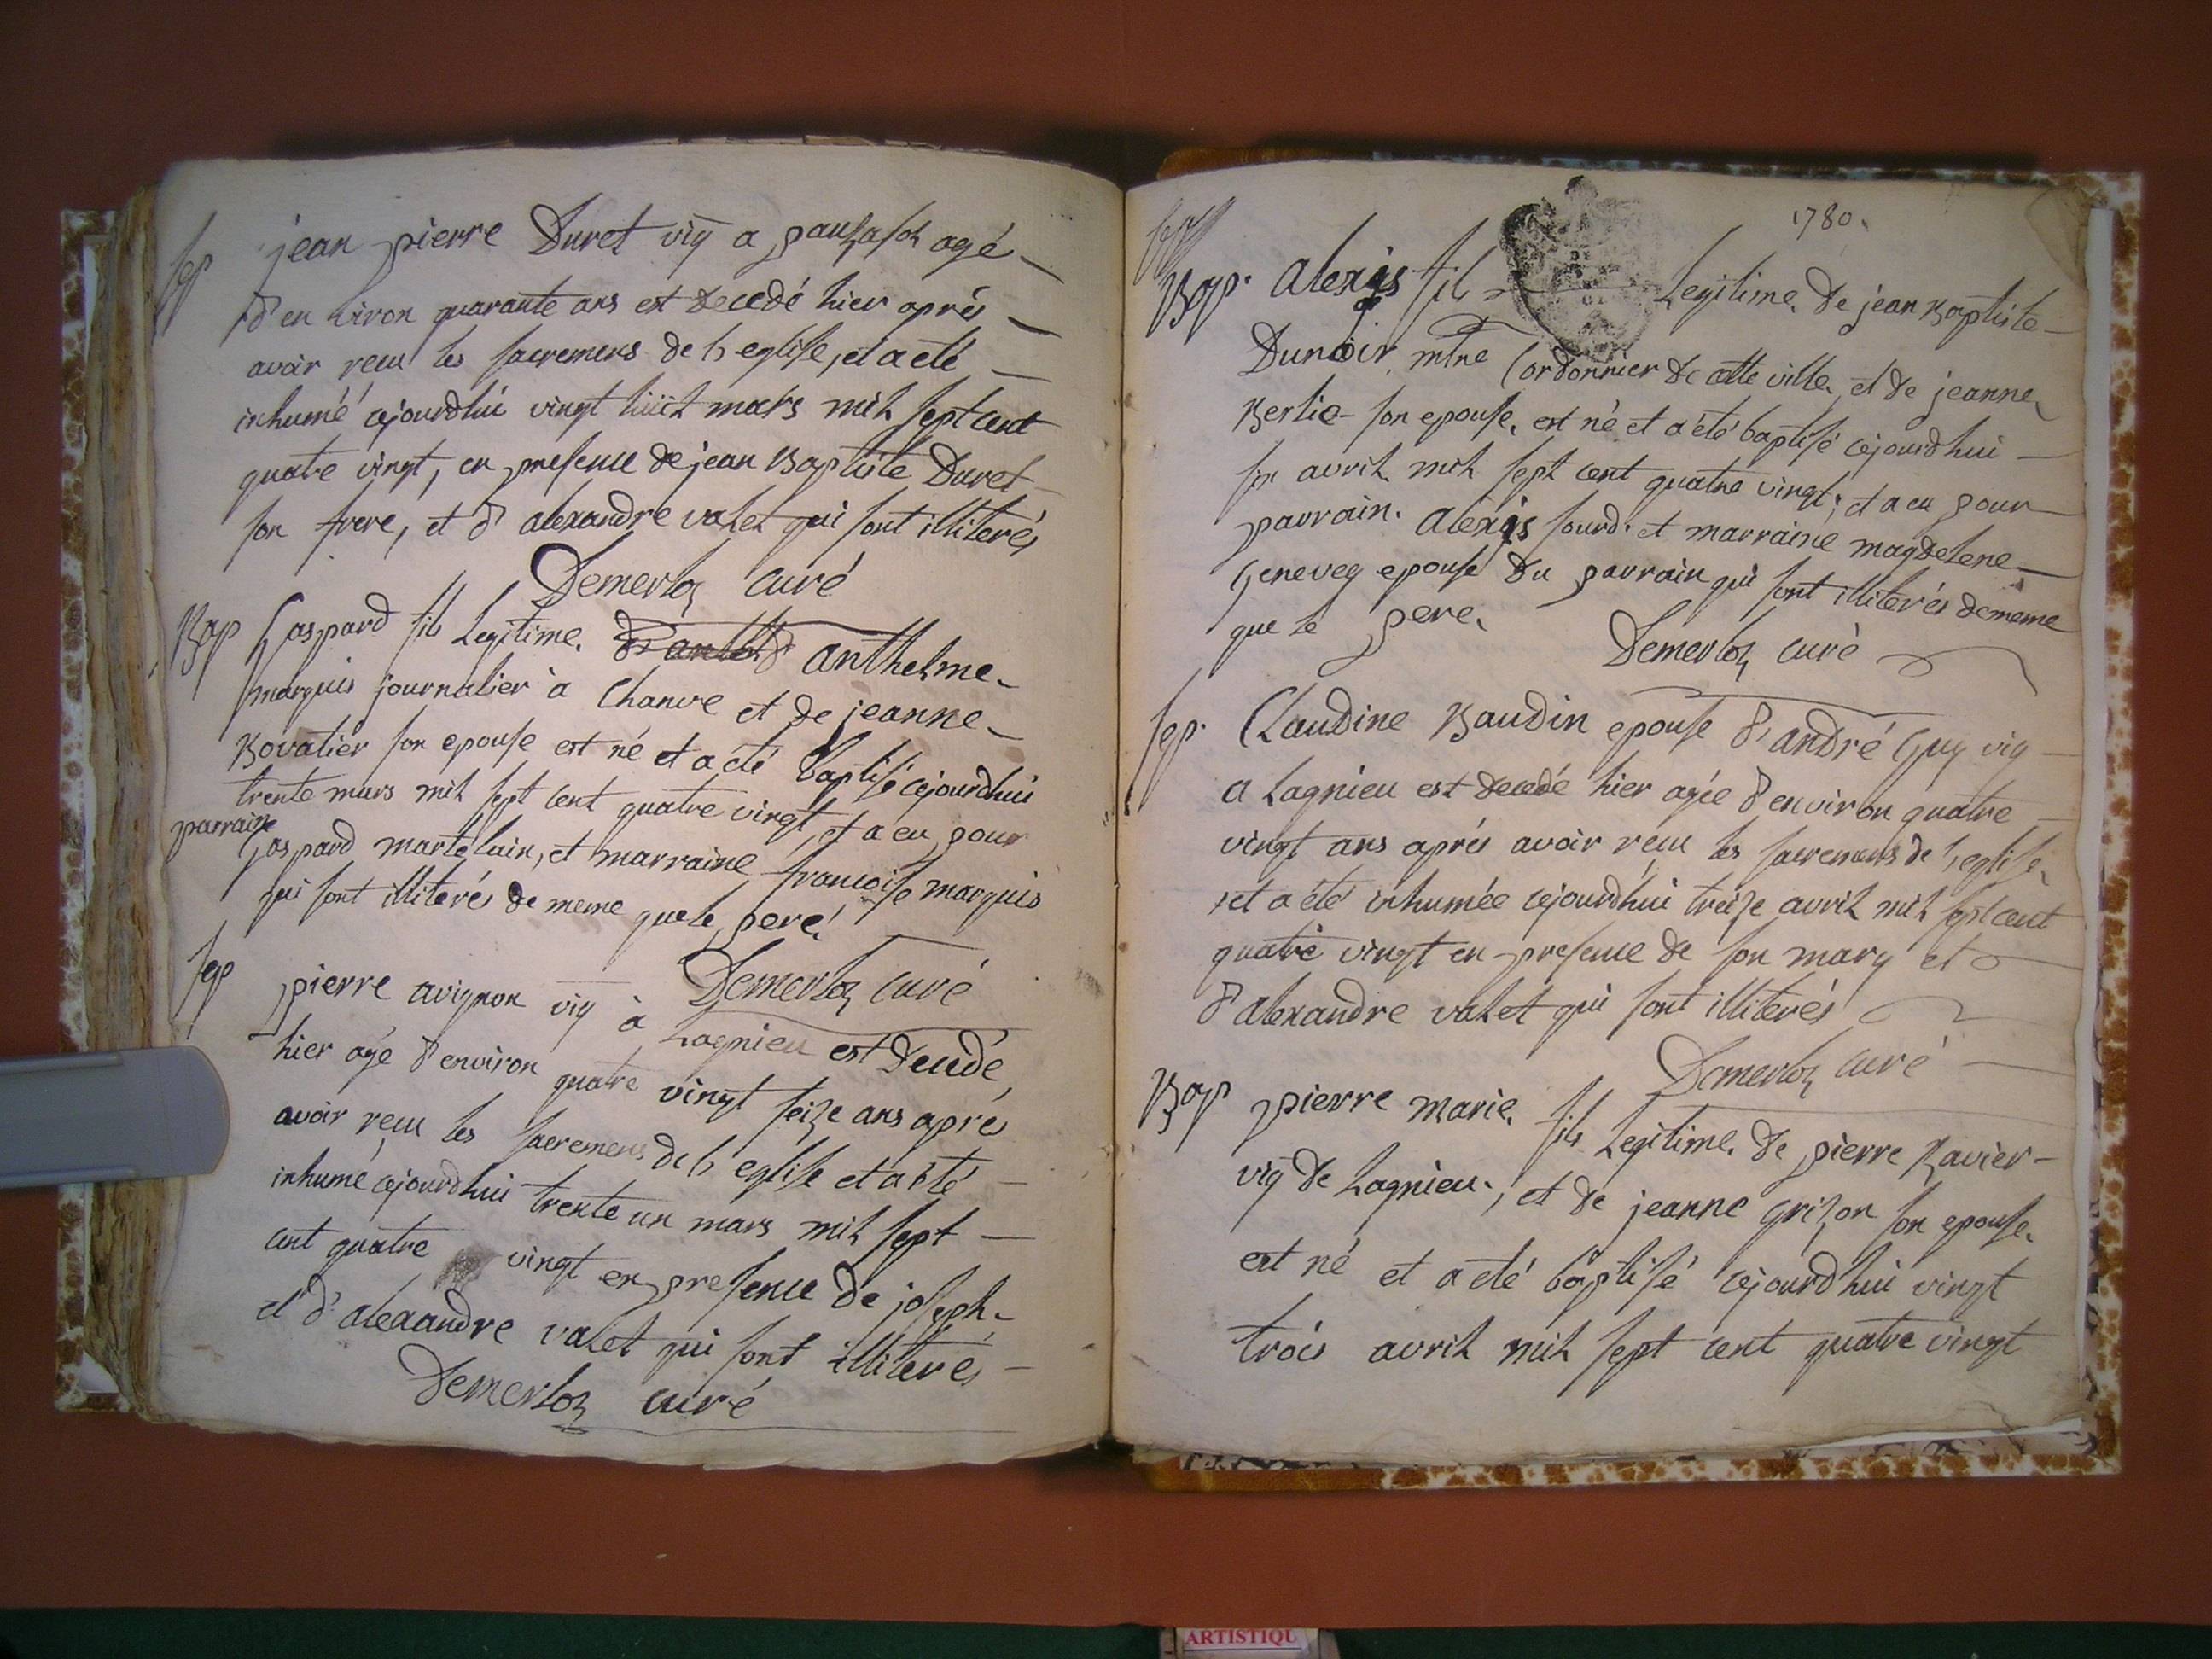 Sep jean pierre Duret vig a agé
d'environ quarante ans est decedé hier aprés
avoir recu les sacremens de l'eglise, et a eté
inhumé cejourdhui vingt huit mars mil sept cent
quatre vingt, en presence de jean Baptiste Duret
son frere, et d'alexandre valet qui sont illiterés
Demerloz curé
Bap Gaspard fils Legitime. d'anthelme
marquis journalier à Chanve et de jeanne
Bovatier son epouse est né et a eté baptisé cejourdhui
trente mars mil sept cent quatre vingt, et a eu pour
parrain Gaspard martelain, et marraine francoise marquis
qui sont illiterés de meme que le pere.
Demerloz curé
Sep pierre avignon vig à Lagnieu est decedé
hier agé d'environ quatre vingt seize ans aprés
avoir reçu les sacremens de l'eglise et a eté
inhumé cejourdhui trente un mars mil sept
cent quatre vingt en presence de joseph
et d'alexandre valet qui sont illiterés
Demerloz curé
1780.
Bap. Alexis fils Legitime. de jean Baptiste
Dunoir mtre Cordonnier de cette ville, et de jeanne
Berlie son epouse, est né et a été baptisé cejourdhui
avril mil sept cent quatre vingt; et a eu pour
parrain. Alexis sourd. et marraine magdelene
Genevey epouse du parrain qui sont illiterés de meme
que le pere.
Demerloz curé
Sep. Claudine Baudin epouse d'andré Guy vig
a Lagnieu est decedé hier agée d'environ quatre
vingt ans aprés avoir reçu les sacremens de l'eglise,
et a été inhumée cejourdhui treize avril mil sept cent
quatre vingt en presence de son mary et
d'alexandre valet qui sont illiterés
Demerloz curé
Bap pierre marie. fils Legitime. de pierre Ravier
vig de Lagnieu., et de jeanne grizon son epouse.
est né et a eté baptisé cejourdhui vingt
trois avril mil sept cent quatre vingt
ARTISTIQU